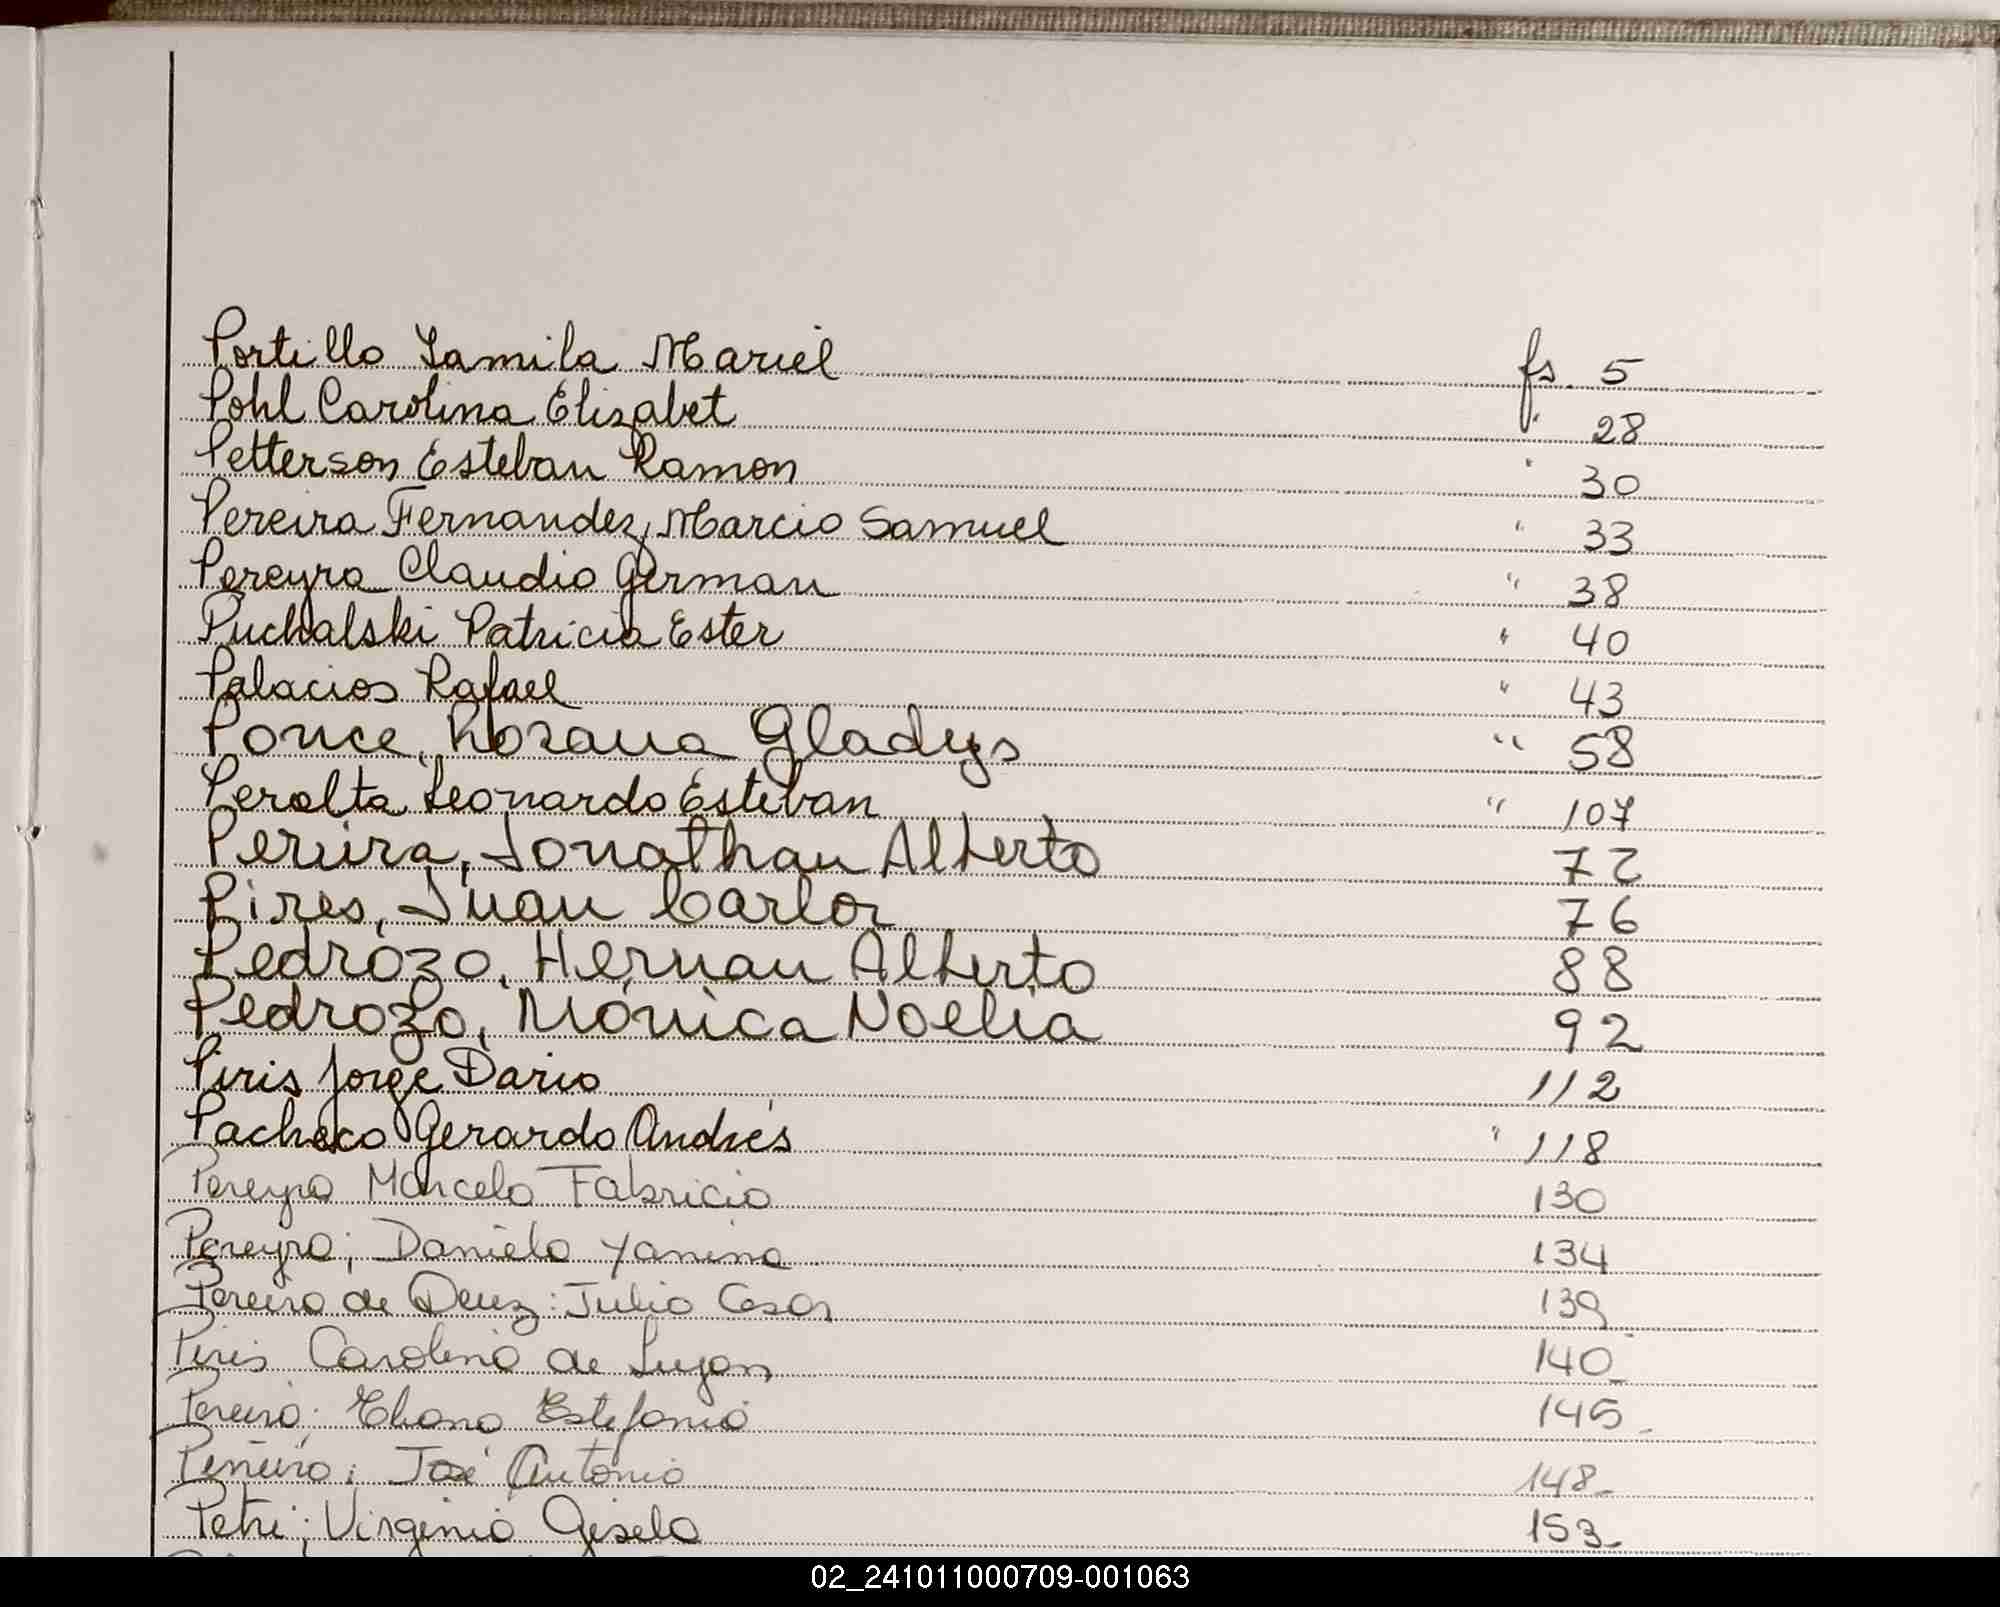 Portillo Yamila Mariel fs. 5
Pohl Carolina Elizabet " 28
Petterson Esteban Ramon " 30
Pereira Fernandez, Marcio Samuel " 33
Pereyra Claudio German " 38
Puchalski Patricia Ester " 40
Palacios Rafael " 43
Ponce, Rosana Gladys " 58
Peralta Leonardo Esteban " 107
Pereira, Jonathan Alberto 72
Pires, Juan Carlos 76
Pedrozo, Hernan Alberto 88
Pedrozo, Mónica Noelia 92
Piris Jorge Dario 112
Pacheco Gerardo Andrés " 118
Pereyra Marcelo Fabricio 130
Pereyra; Daniela Yanina 134
Pereira de : Julio Cesar 139
Piris Carolina de Lujan 140
Pereira; Estefania 145
Piñeiro; José Antonio 148
Petri; Virginia Gisela 153
02_241011000709-001063